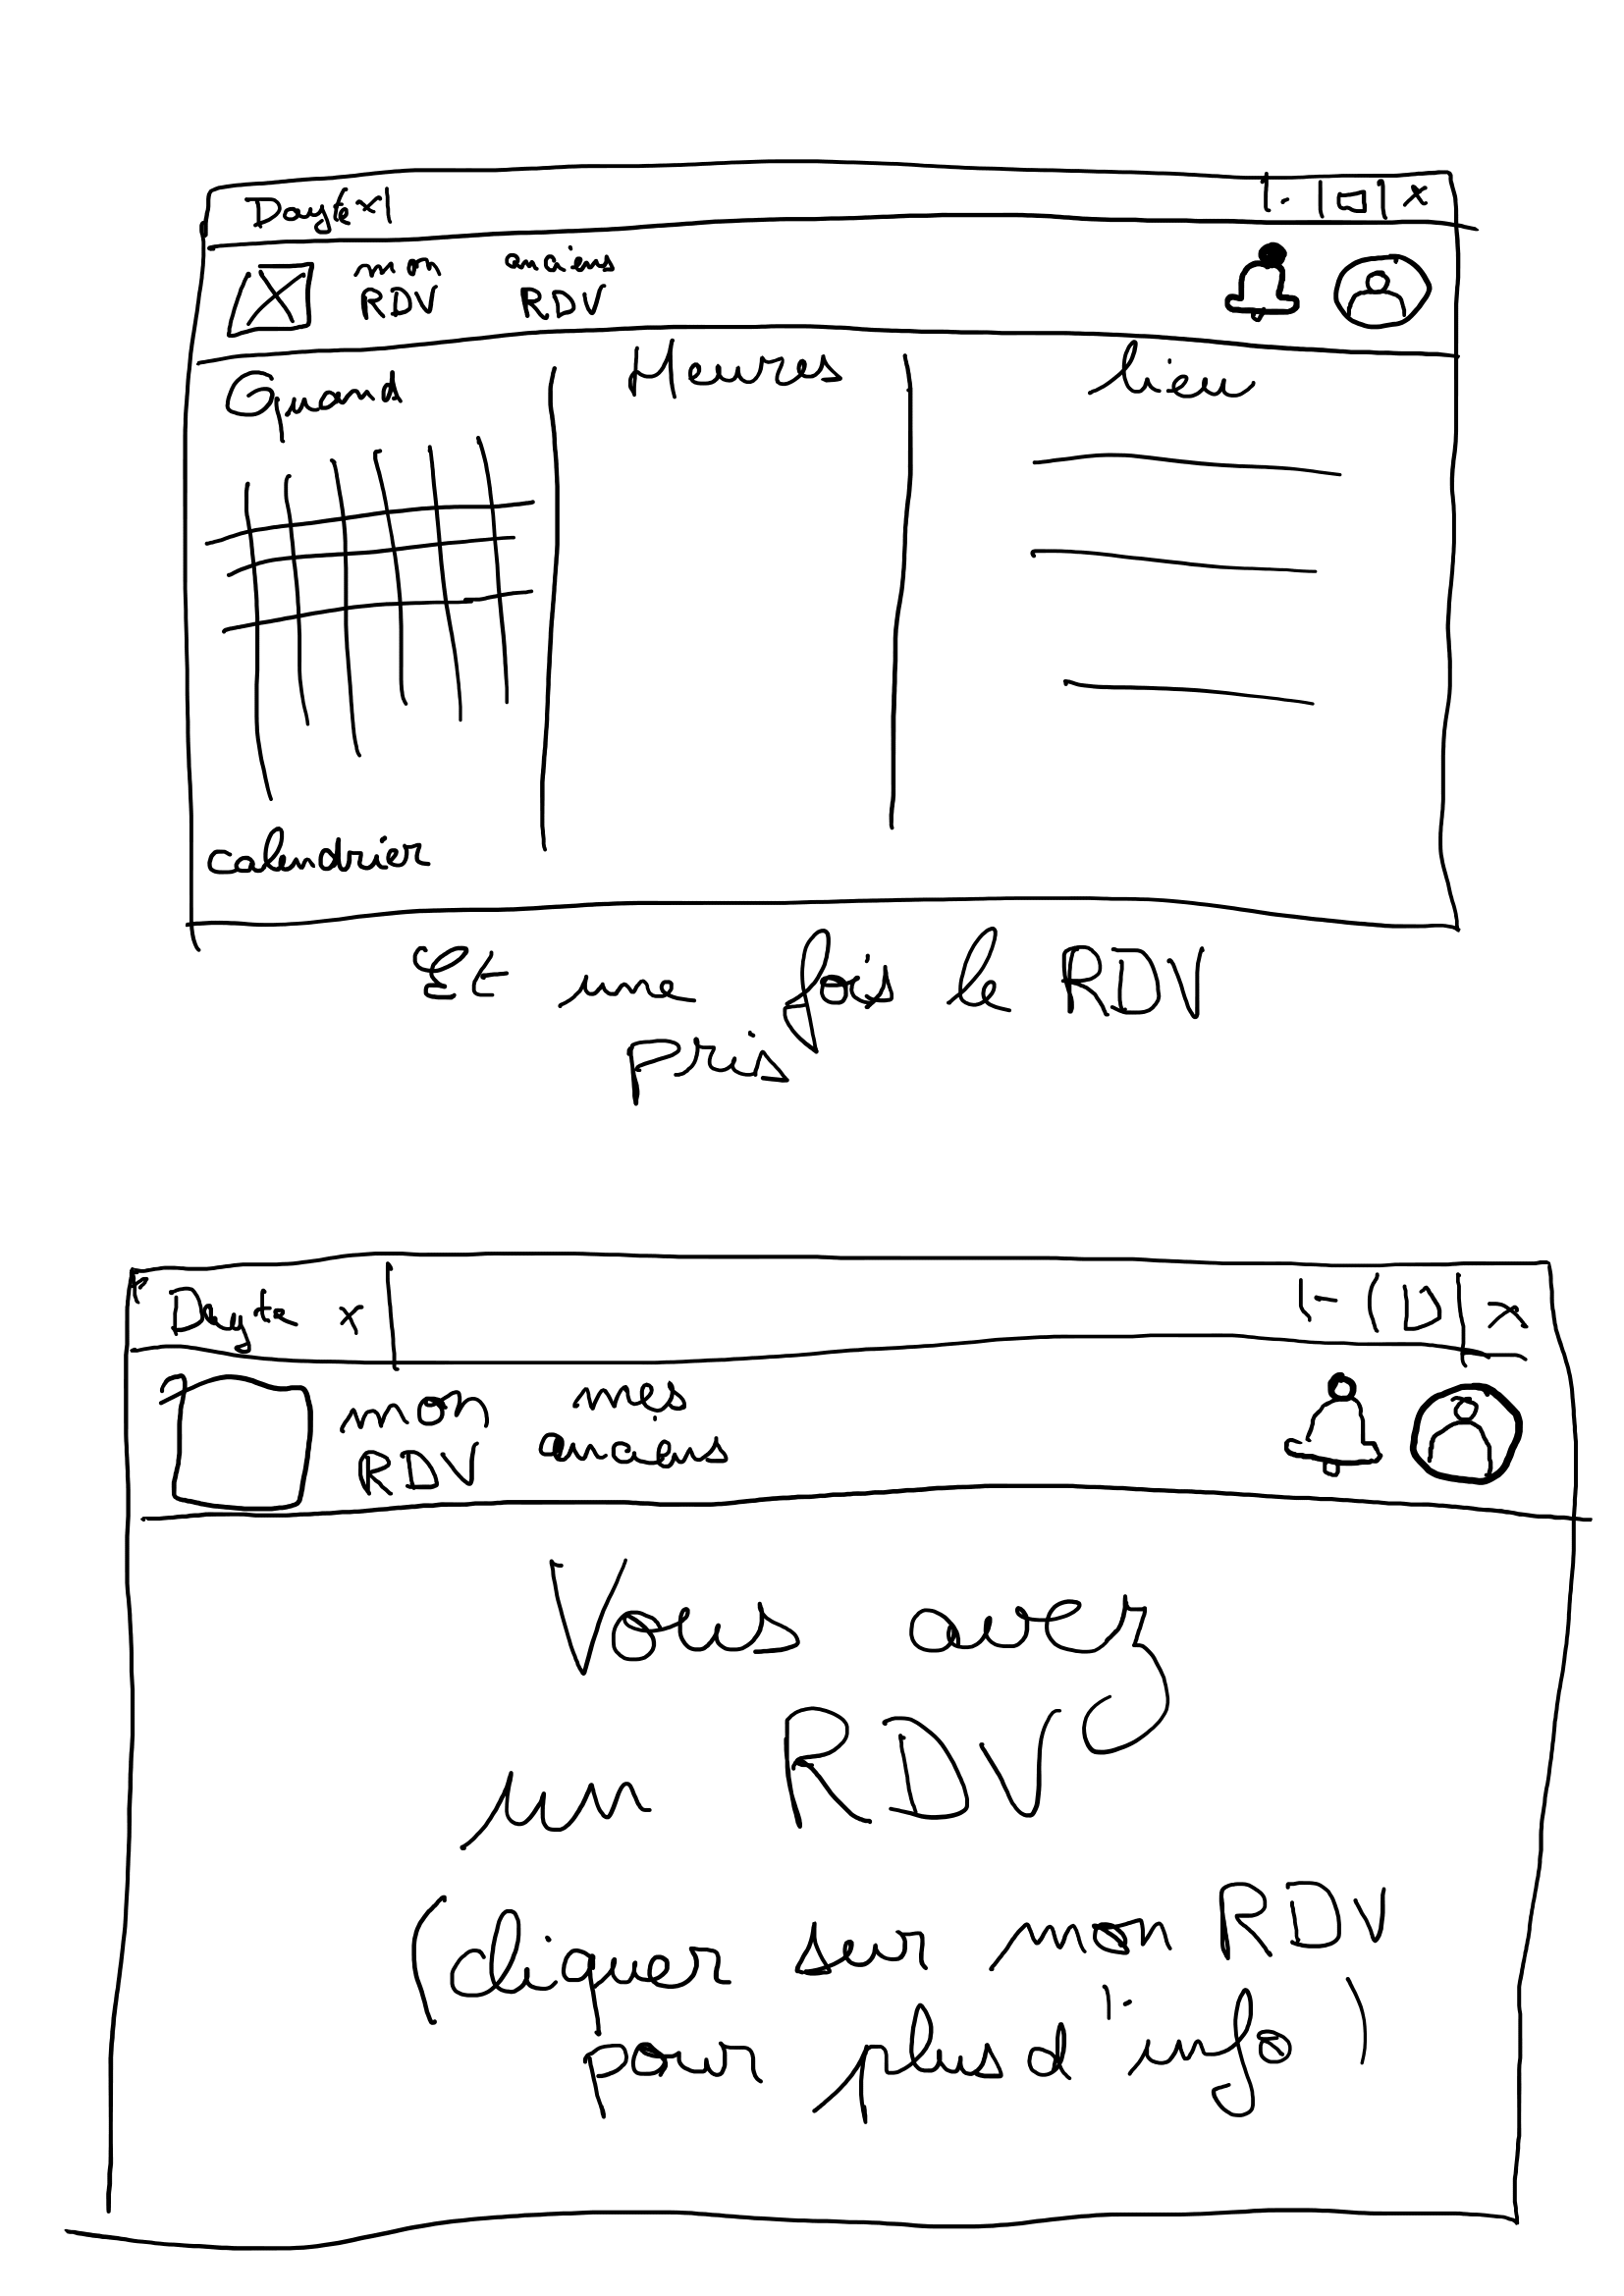 Dayte x
mon anciens
RDV RDV
Quand Heures lieu
calendrier
Et une fois le RDV
pris
Dayte x
mon mes
RDV anciens
Vous avez
un RDV
(cliquer sur mon RDV
pour plus d'info)